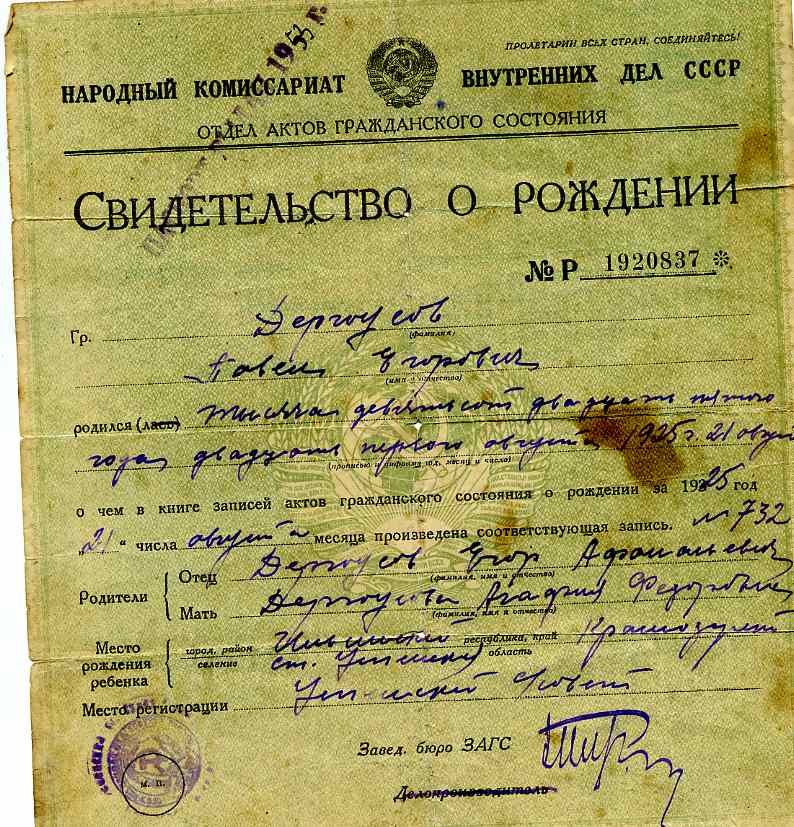 ПРОЛЕТАРИИ ВСЕХ СТРАН, СОЕДИНЯЙТЕСЬ!
НАРОДНЫЙ КОМИССАРИАТ ВНУТРЕННИХ ДЕЛ СССР
ОТДЕЛ АКТОВ ГРАЖДАНСКОГО СОСТОЯНИЯ
СВИДЕТЕЛЬСТВО О РОЖДЕНИИ
№ Р 1920837 *
Гр. Дергоусов
(фамилия)
Павел Егорович
(имя и отчество)
родился (лась) тысяча девятьсот двадцать пятого
года двадцать первого августа 1925 г. 21 август
(прописью и цифрами год, месяц и число)
о чем в книге записей актов гражданского состояния о рождении за 1925 год
"21" числа августа месяца произведена соответствующая запись. № 732
Родители
Отец Дергоусов Егор
(фамилия, имя и отчество)
Мать Дергоусова Агафия Федоровна
(фамилия, имя и отчество)
Место рождения ребенка
город, район республика, край
селение ст. область
Место регистрации совет
Завед. бюро ЗАГС
Делопроизводитель
м. п.